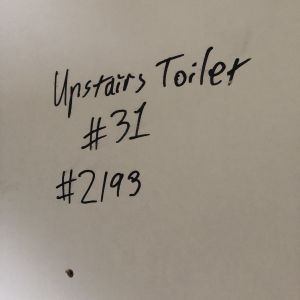 Upstairs Toilet
#31
#2193